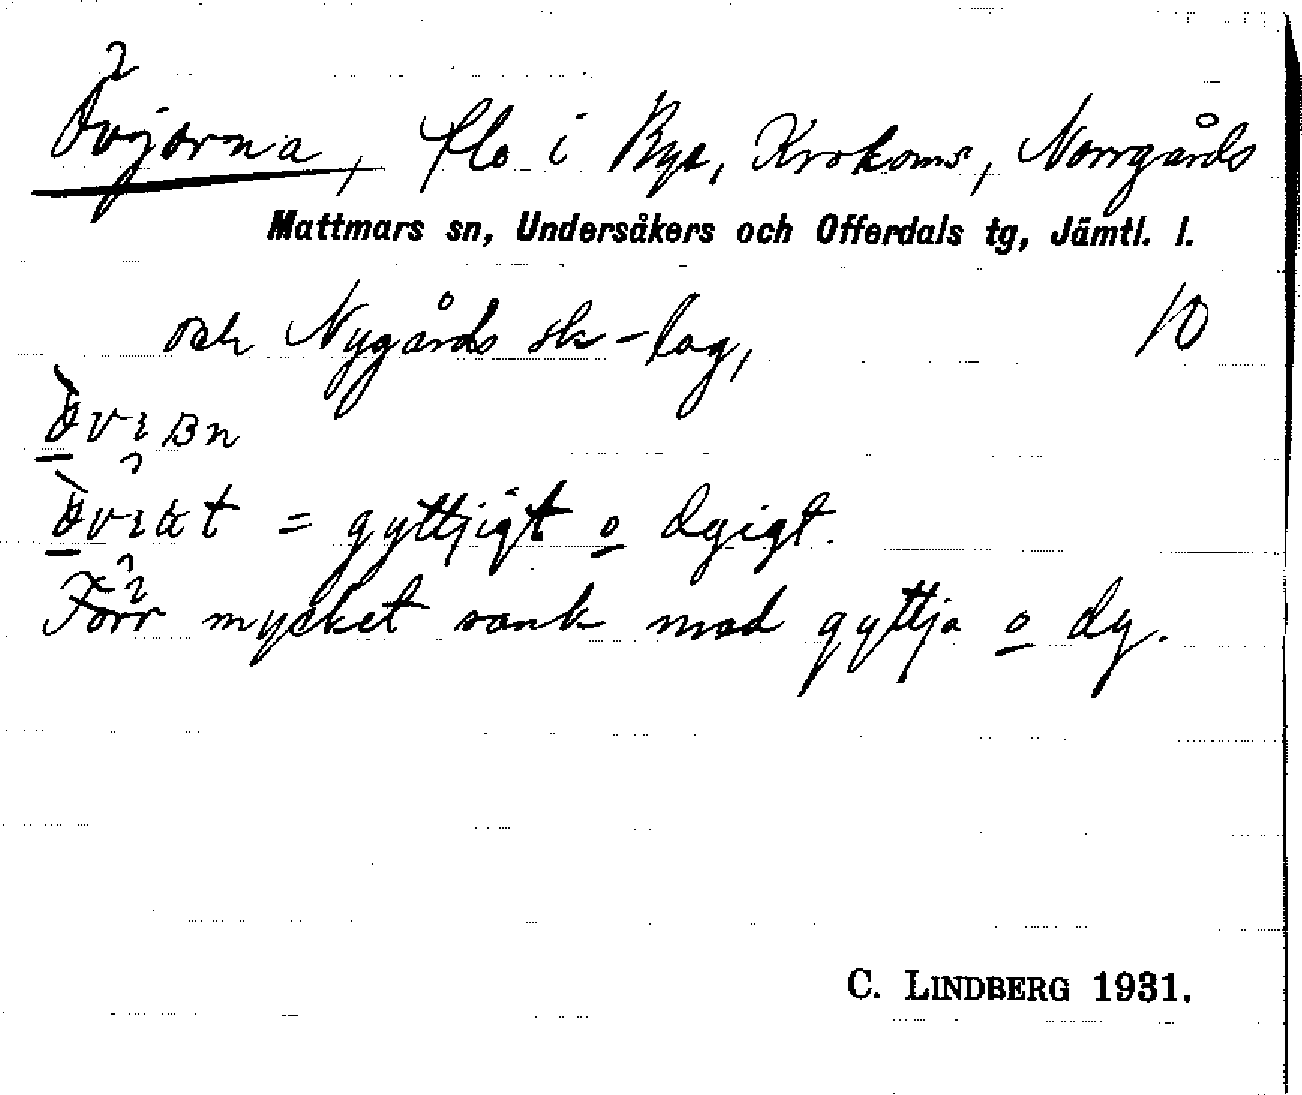 Övjorna, flo i Bye, Krokoms, Norrgårds
Mattmars sn, Undersåkers och Offerdals tg, Jämtl. l.
och Nygårds sk-lag, 10
= gyttjigt o dyigt.
Förr mycket sank med gyttja o dy.
C. LINDBERG 1931.